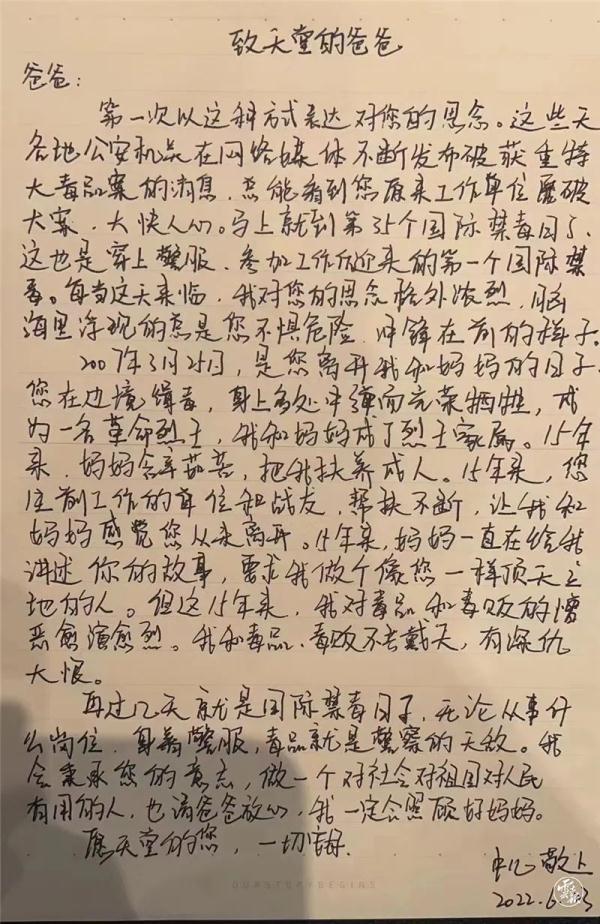 致天堂的爸爸
爸爸：
第一次以这种方式表达对您的思念。这些天
各地公安机关在网络媒体不断发布破获重特
大毒品案的消息，总能看到您原来工作单位屡破
大案，大快人心。马上就到第35个国际禁毒日了，
这也是穿上警服、参加工作后迎来的第一个国际禁
毒。每当这天来临，我对您的思念格外浓烈，脑
海里浮现的总是您不惧危险、冲锋在前的样子。
2007年3月25日，是您离开我和妈妈的日子，
您在边境缉毒，身上多处中弹而光荣牺牲，成
为一名革命烈士，我和妈妈成了烈士家属。15年
来，妈妈含辛茹苦，把我扶养成人。15年来，您
生前工作的单位和战友，帮扶不断，让我和
妈妈感觉您从未离开。15年来，妈妈一直在给我
讲述你的故事，要求我做个像您一样顶天立
地的人。但这15年来，我对毒品和毒贩的憎
恶愈演愈烈。我和毒品、毒贩不共戴天，有深仇
大恨。
再过几天就是国际禁毒日子，无论从事什
么岗位，身着警服，毒品就是警察的天敌。我
会秉承您的意志，做一个对社会对祖国对人民
有用的人，也请爸爸放心，我一定会照顾好妈妈。
愿天堂的您，一切安好
敬上
2022.6.
OURSTORYBEGINS